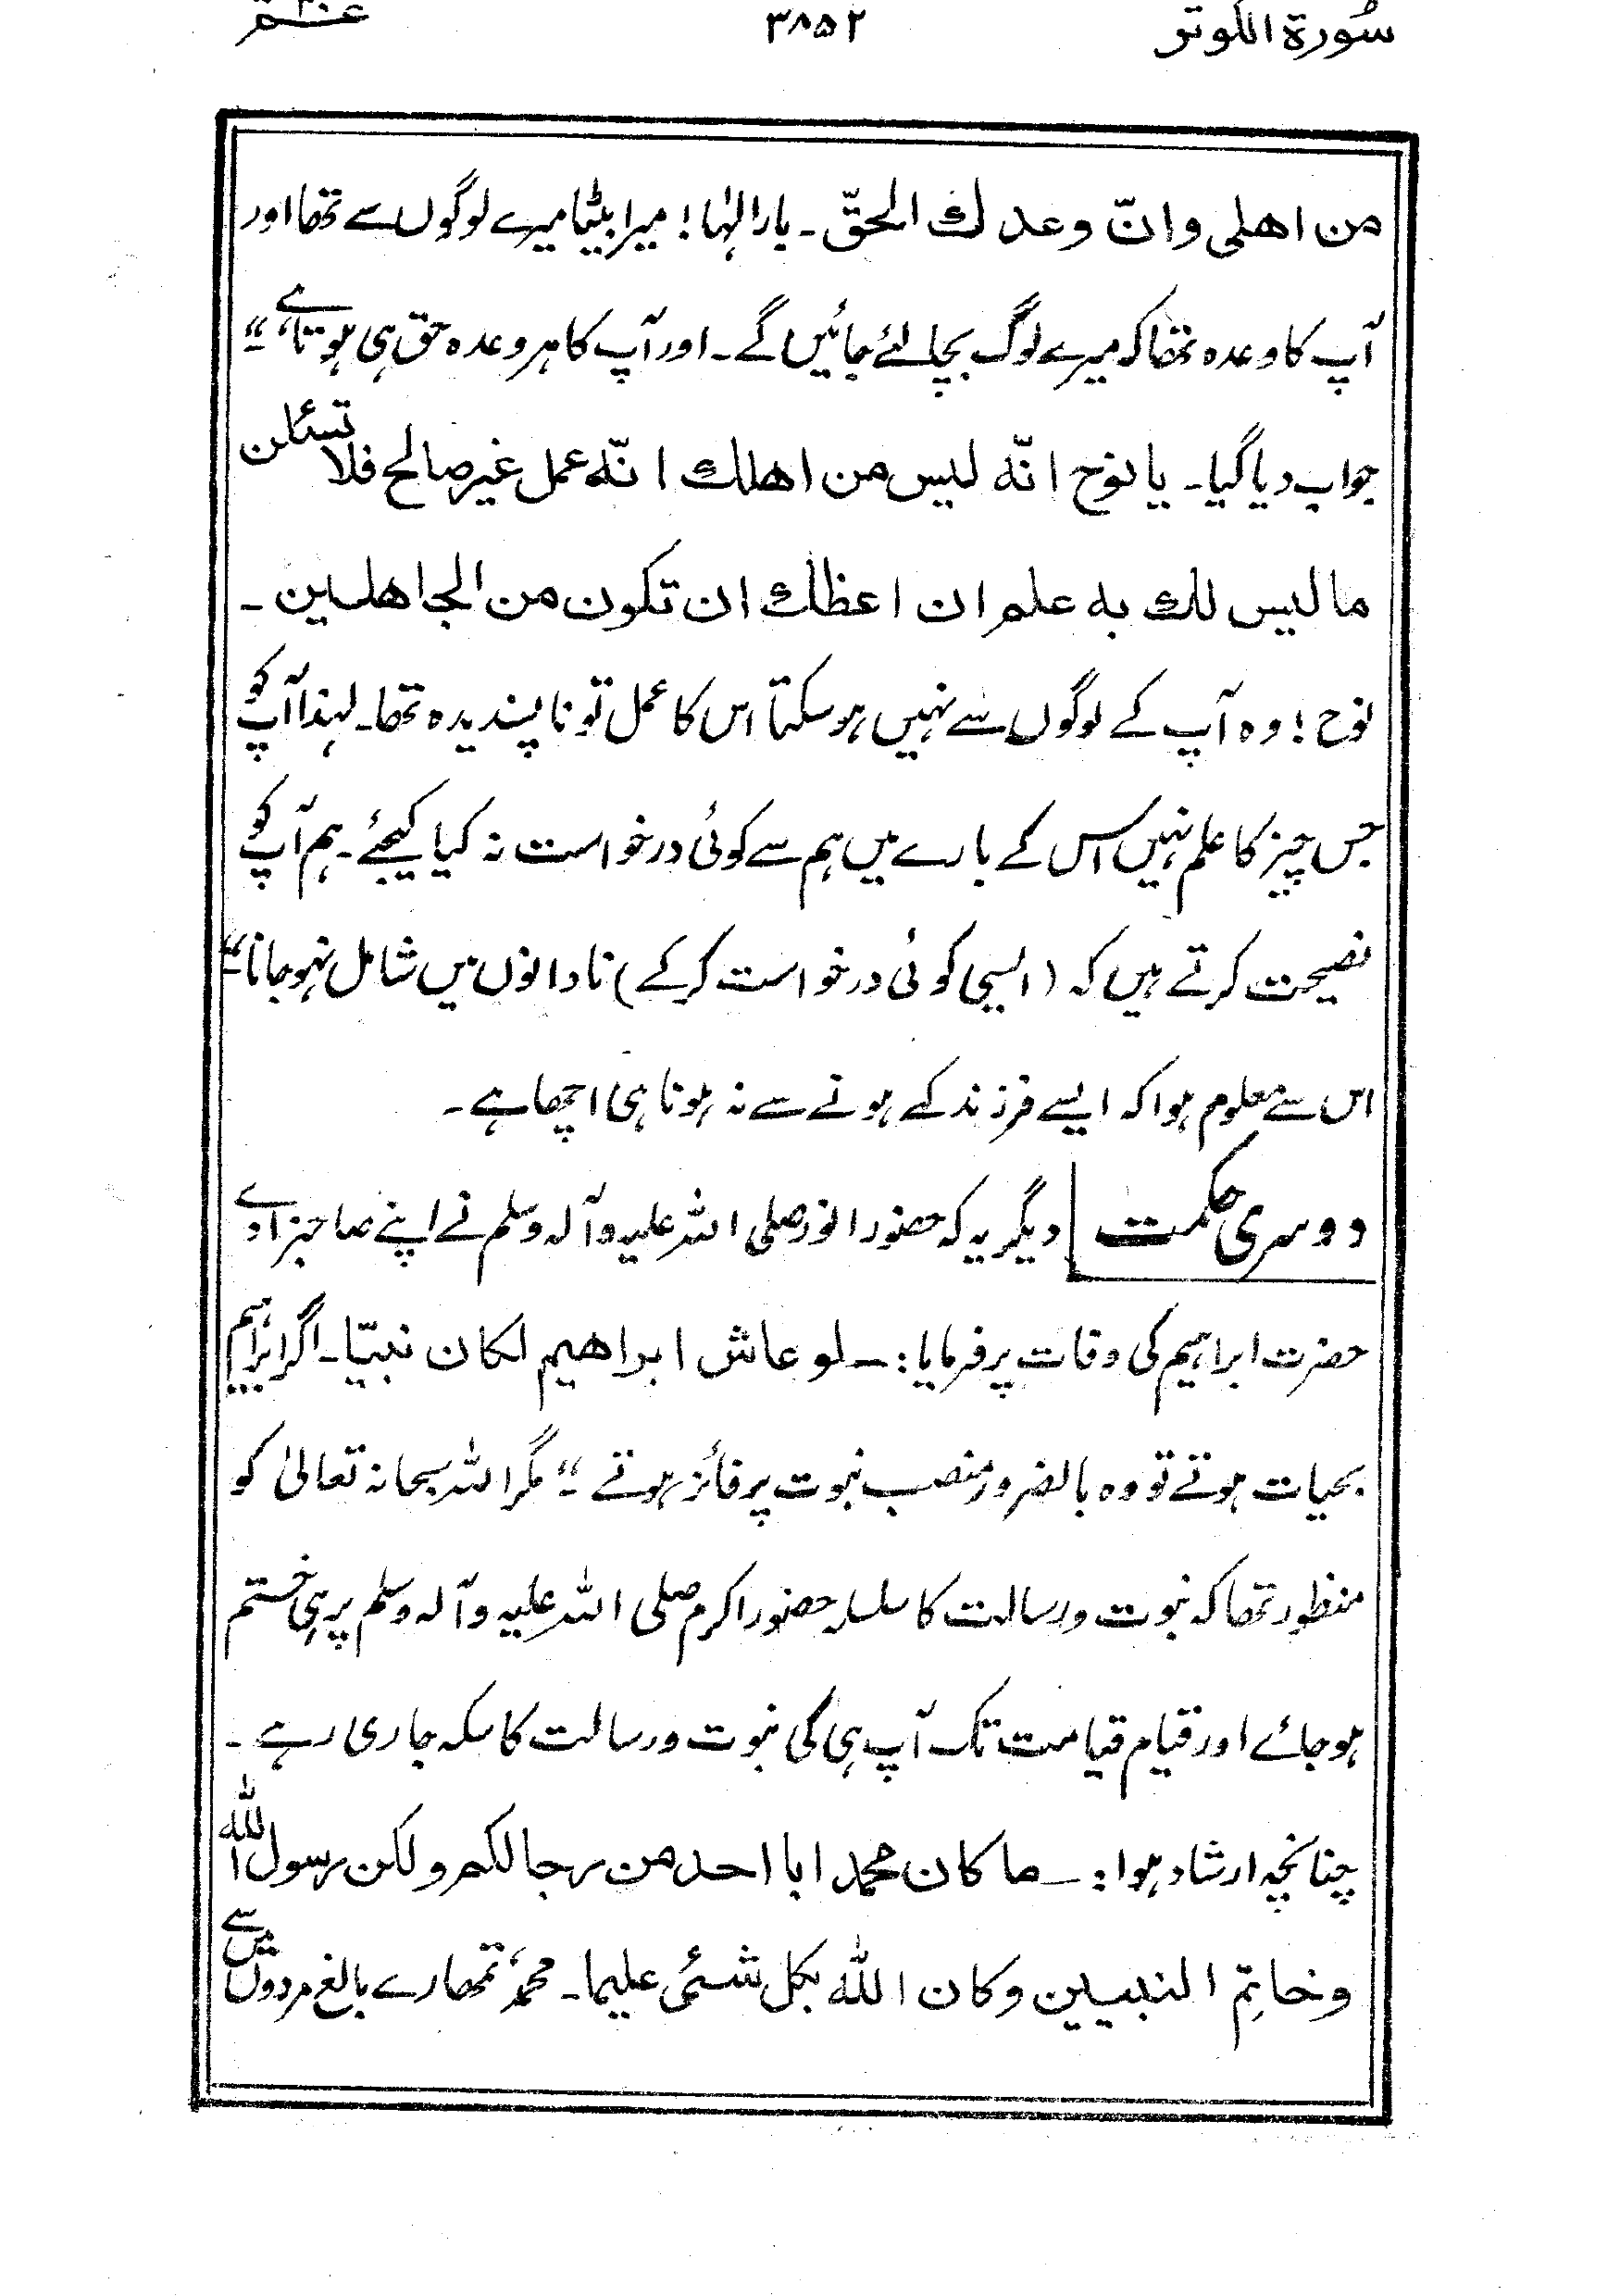 سُورۃ الکوثر ۳۸۵۲ عــم ۳۰
من اھلی وانّ وعدك الحقّ ۔ بارالٰہا! میرا بیٹا میرے لوگوں سے تھا اور
آپ کا وعدہ تھا کہ میرے لوگ بچا لئے جائیں گے ۔ اور آپ کا ہر وعدہ حق ہی ہوتا ہے"
جواب دیا گیا۔ یا نوح انّه لیس من اھلك انّه عمل غیر صالح فلا تسئلن
ما لیس لك به علم ان اعظك ان تکون من الجاھلین ۔
نوح! وہ آپ کے لوگوں سے نہیں ہو سکتا اس کا عمل تو نا پسندیدہ تھا۔ لہذا آپ کو
جس چیز کا علم نہیں اس کے بارے میں ہم سے کوئی درخواست نہ کیا کیجئے۔ ہم آپ کو
نصیحت کرتے ہیں کہ (ایسی کوئی درخواست کر کے) نادانوں میں شامل نہو جانا"
اس سے معلوم ہوا کہ ایسے فرزند کے ہونے سے نہ ہونا ہی اچھا ہے ۔
دوسری حکمت دیگر یہ کہ حضور انور صلی اللہ علیہ وآلہ وسلم نے اپنے صاحبزادے
حضرت ابراہیم کی وفات پر فرمایا:۔ لو عاش ابراھیم لکان نبیّا۔ اگر ابراہیم
بحیات ہوتے تو وہ بالضرور منصب نبوت پر فائز ہوتے" مگر اللہ سبحانہ تعالیٰ کو
منظور تھا کہ نبوت ورسالت کا سلسلہ حضور اکرم صلی اللہ علیہ وآلہ وسلم پر ہی ختم
ہو جائے اور قیام قیامت تک آپ ہی کی نبوت ورسالت کا سکہ جاری رہے ۔
چنانچہ ارشاد ہوا:۔ ما کان محمد ابا احد من رجالکم ولکن رسول اللّٰه
وخاتِم النبیین وکان اللّٰه بکل شئی علیما۔ محمدؐ تمھارے بالغ مردوں میں سے